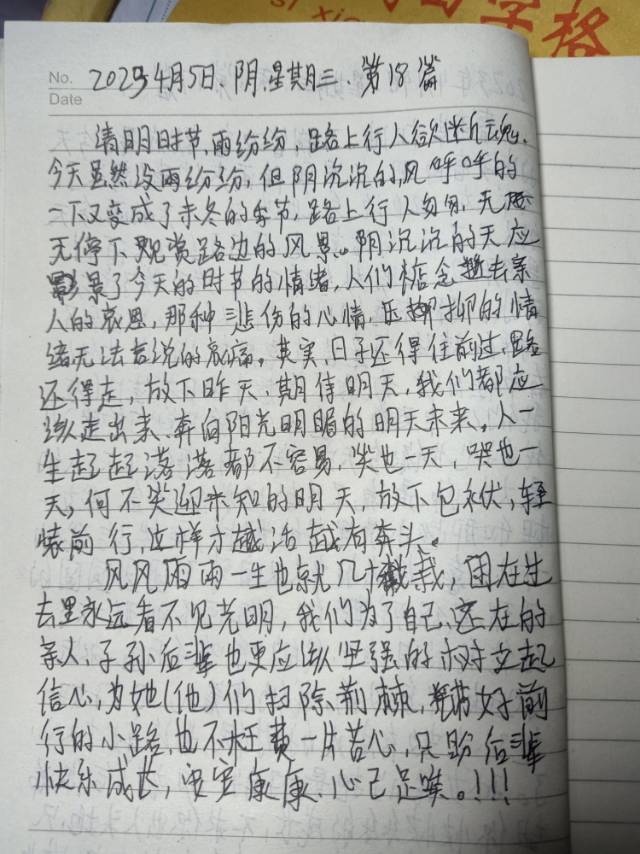 学格
si xia
No.
Date
2023年4月5日、阴、星期三、第18篇
清明时节,雨纷纷,路上行人欲断魂、
今天虽然没雨纷纷,但阴沉沉的,风呼呼的
一下又变成了未冬的季节,路上行人匆匆,无
无停下观赏路边的风景。阴沉沉的天应
影景了今天的时节的情绪,人们惦念逝去亲
人的哀思,那种悲伤的心情,压抑的情
绪无法言说的哀痛。其实,日子还得往前过,路
还得走,放下昨天,期待明天,我们都应
该走出来、奔向阳光明媚的明天未来。人一
生起起落落都不容易,笑也一天,哭也一
天,何不笑迎未知的明天,放下包袱,轻
装前行,这样才越活越有奔头。
风风雨雨一生也就几十载,困在过
去里永远看不见光明,我们为了自己、还在的
亲人、子孙后辈也更应该坚强的树立起
信心,为她(他)们扫除荆棘,铺好前
行的小路,也不枉费一片苦心,只盼后辈
快乐成长,安安康康、心已足唉。!!!